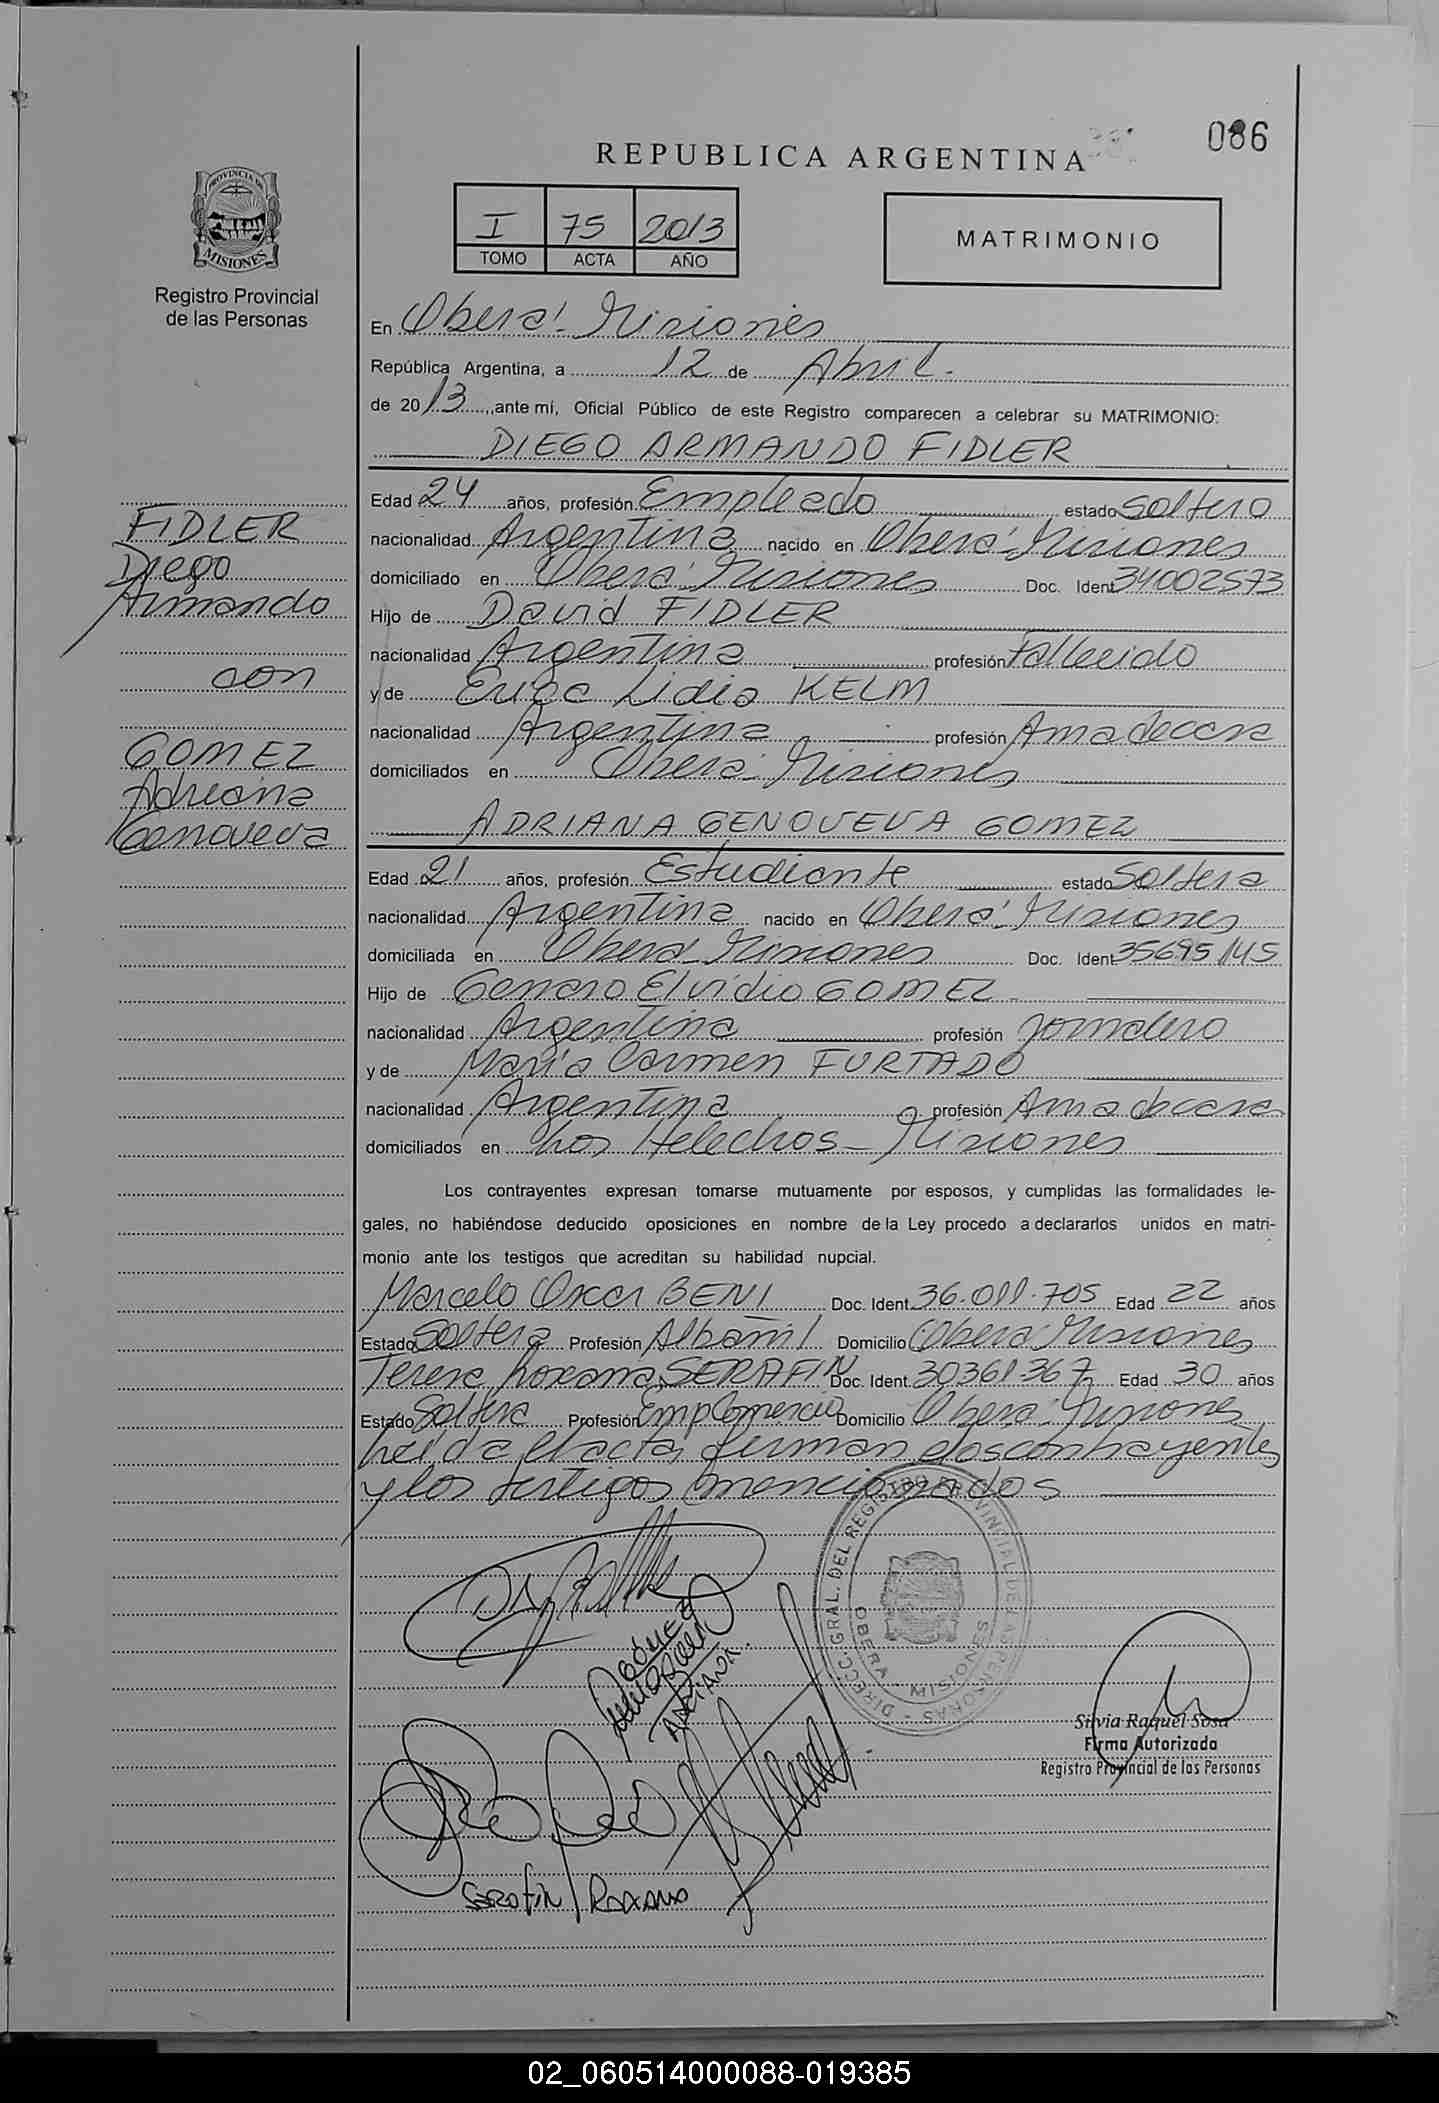 086
REPUBLICA ARGENTINA
PROVINCIA DE
MISIONES
Registro Provincial
de las Personas
I 75 2013
TOMO ACTA AÑO
MATRIMONIO
En Oberá - Misiones
República Argentina, a 12 de Abril.
de 2013, ante mí, Oficial Público de este Registro comparecen a celebrar su MATRIMONIO:
DIEGO ARMANDO FIDLER
Edad 24 años, profesión Empleado estado soltero
nacionalidad Argentina nacido en Oberá - Misiones
domiciliado en Oberá Misiones Doc. Ident 34002573
Hijo de David FIDLER
nacionalidad Argentina profesión Fallecido
y de Lidia KELM
nacionalidad Argentina profesión Amadecasa
domiciliados en Oberá - Misiones
FIDLER
Diego
Armando
con
GOMEZ
Adriana
Genoveva
ADRIANA GENOVEVA GOMEZ
Edad 21 años, profesión Estudiante estado Soltera
nacionalidad Argentina nacido en Oberá - Misiones
domiciliada en Oberá - Misiones Doc. Ident 35695145
Hijo de Genaro Elvidio GOMEZ
nacionalidad Argentina profesión Jornalero
y de María Carmen FURTADO
nacionalidad Argentina profesión Amadecasa
domiciliados en Los Helechos - Misiones
Los contrayentes expresan tomarse mutuamente por esposos, y cumplidas las formalidades le-
gales, no habiéndose deducido oposiciones en nombre de la Ley procedo a declararlos unidos en matri-
monio ante los testigos que acreditan su habilidad nupcial.
Marcelo Oscar BENI Doc. Ident. 36.011.705 Edad 22 años
Estado Soltera Profesión Albañil Domicilio Oberá Misiones
Teresa Roxana SERAFIN Doc. Ident. 30361.367 Edad 30 años
Estado Soltera Profesión Emp Comercio Domicilio Oberá - Misiones
Leída el acta, firman los contrayentes
y los testigos mencionados
DIRECC. GRAL. DEL REGISTRO PROVINCIAL DE LAS PERSONAS
OBERA - MISIONES
GÓMEZ
ADRIANA
Silvia Raquel Sosa
Firma Autorizada
Registro Provincial de las Personas
SERAFIN ROXANA
02_060514000088-019385